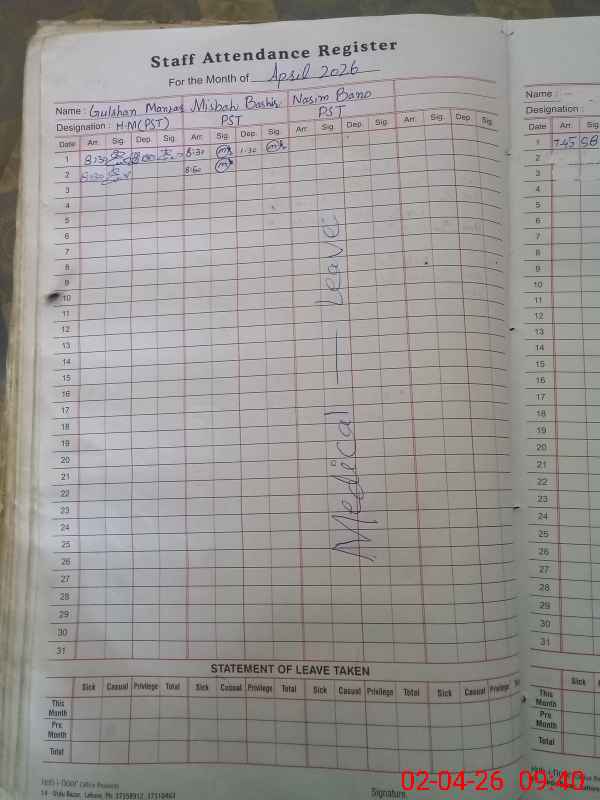 Staff Attendance Register
For the Month of April 2026
Name : Gulshan Manzar Misbah Bashir Nasim Bano
Designation : H.M(PST) PST PST
Date Arr. Sig. Dep. Sig. Arr. Sig. Dep. Sig. Arr. Sig. Dep. Sig. Arr. Sig. Dep. Sig.
1 8:30 8:30 1:30
2 8:30 8:30
3
4
5
6
7
8
9
10
11
12
13
14
15
16
17
18
19
20
21
22
23
24
25
26
27
28
29
30
31
Medical — Leave
STATEMENT OF LEAVE TAKEN
Sick Casual Privilege Total Sick Casual Privilege Total Sick Casual Privilege Total Sick Casual Privilege
This Month
Pre Month
Total
Signature
Name :
Designation :
Date Arr. Sig.
1 7:45 SB
2
3
4
5
6
7
8
9
10
11
12
13
14
15
16
17
18
19
20
21
22
23
24
25
26
27
28
29
30
31
Sick
This Month
Pre Month
Total
02-04-26 09:40